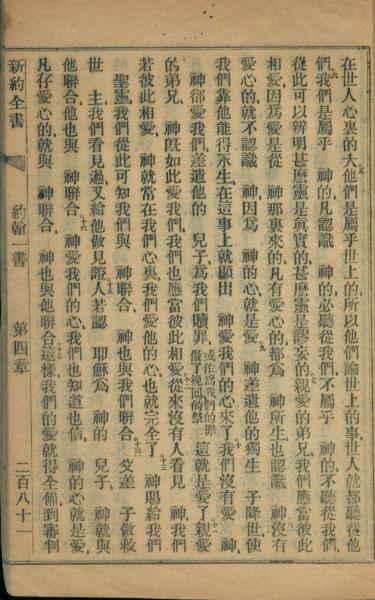 在世人心裏的大他們是屬乎世上的所以他們論世上的事世人就都聽從他
們我們是屬乎 神的凡認識 神的必聽從我們不屬乎 神的不聽從我們
從此可以辨明甚麼靈是眞實的甚麼靈是謬妄的親愛的弟兄我們應當彼此
相愛因爲愛是從 神那裏來的凡有愛心的都爲 神所生也認識 神沒有
愛心的就不認識 神因爲 神的心就是愛 神差遣他的獨生 子降世使
我們靠他能得永生在這事上就顯出 神愛我們的心來了我們沒有愛 神
神卻愛我們差遣他的 兒子爲我們了贖罪或作爲我們的罪做了挽回的祭 這就是愛了親愛
的弟兄 神旣如此愛我們我們也應當彼此相愛從來沒有人看見 神我們
若彼此相愛 神就常在我們心裏我們愛他的心也就完全了 神賜給我們
聖靈我們從此可知我們與 神聯合 神也與我們聯合 父差 子做救
世 主我們看見過又給他做見證人若認 耶穌爲 神的 兒子 神就與
他聯合他也與 神聯合 神愛我們的心我們也知道也信 神的心就是愛
凡存愛心的就與 神聯合 神也與他聯合這樣我們的愛就得全備到審判
新約全書 約翰一書 第四章 二百八十一